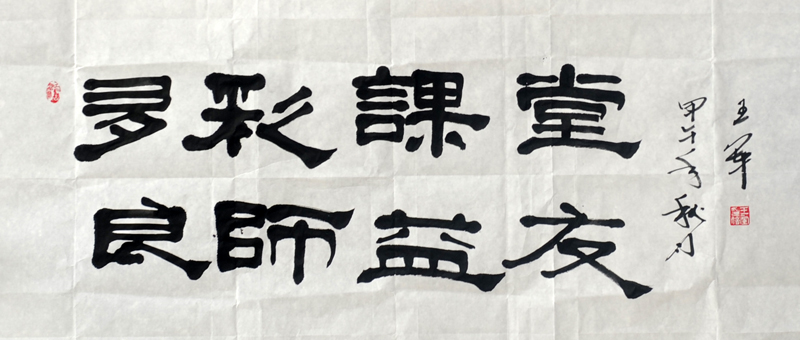 多彩課堂
良師益友
甲午年秋月
王军